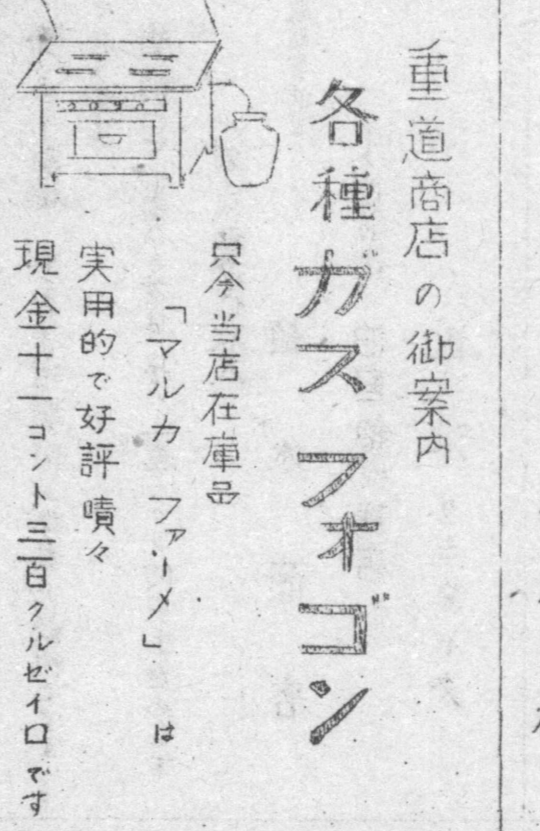 重道商店の御案内
各種ガスフォゴン
只今当店在庫品
「マルカ ファーメ」は
実用的で好評嘖々
現金十一コント三百クルゼイロです